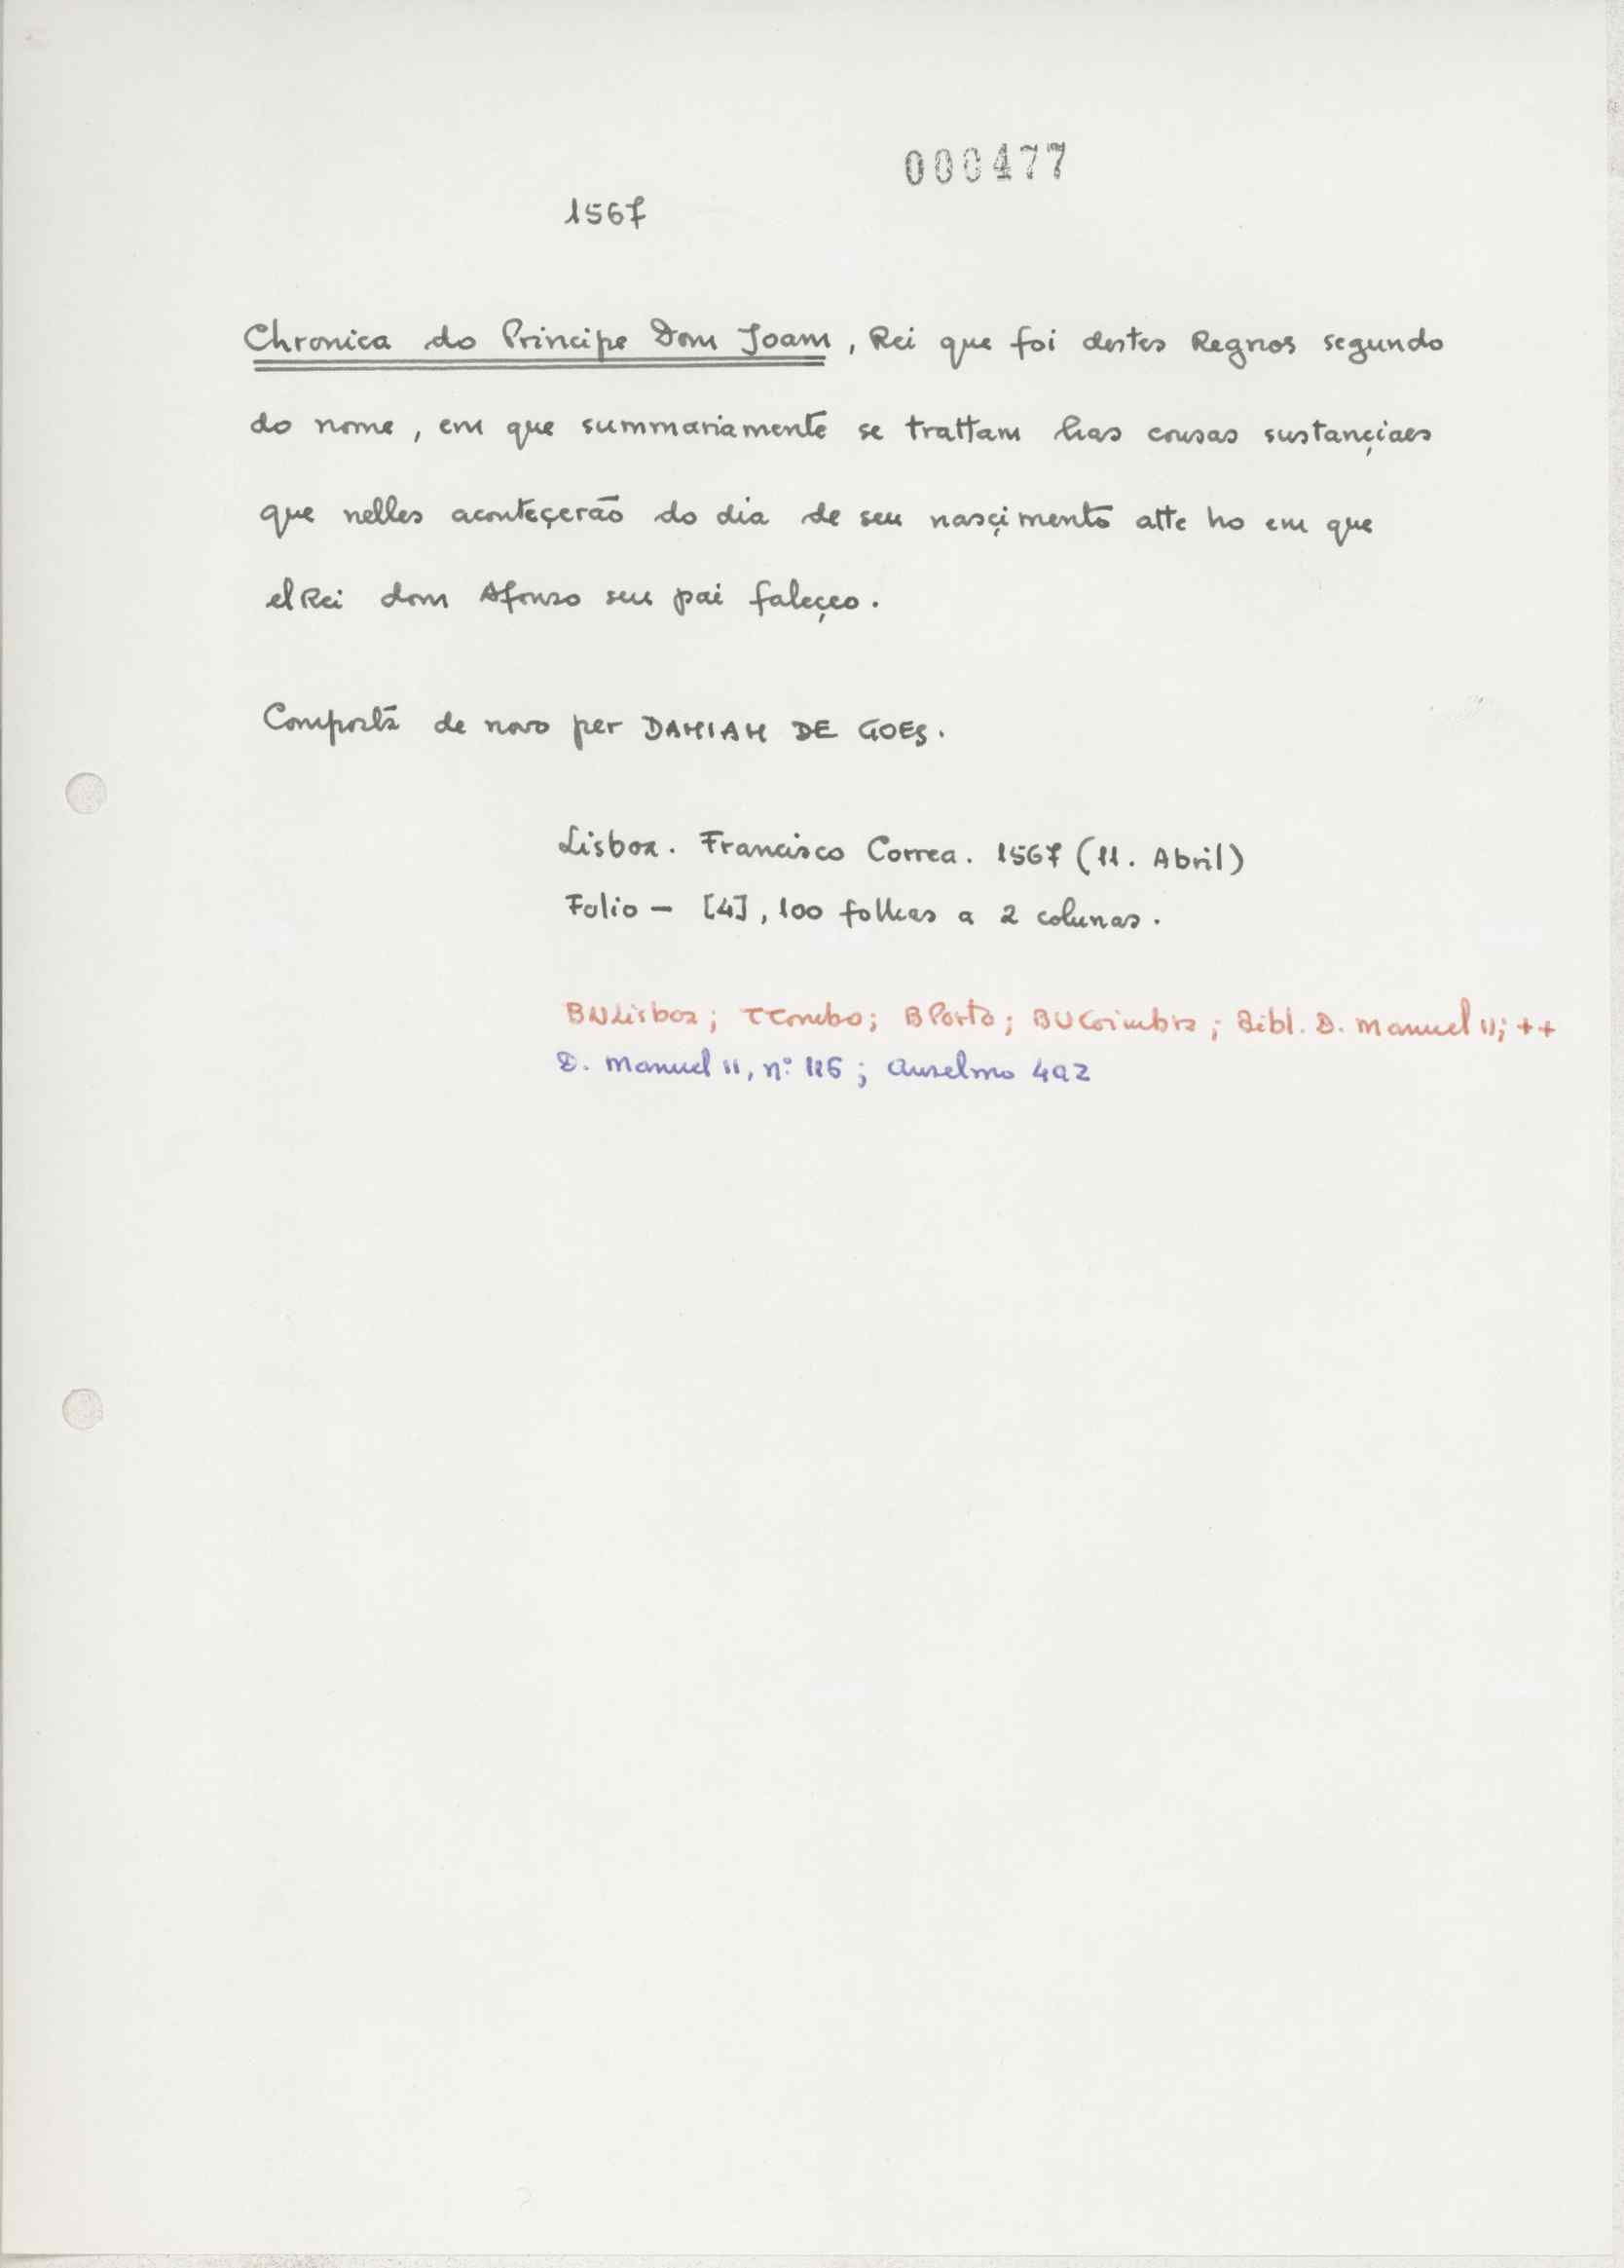 000477
1567
Chronica do Principe Dom Joam, Rei que foi destes Regnos segundo
do nome, em que summariamente se trattam has cousas sustançiaes
que nelles aconteçerão do dia de seu nasçimento atte ho em que
elRei dom Afonso seu pai faleçeo.
Composta de novo per DAMIAM DE GOES.
Lisboa. Francisco Correa. 1567 (11. Abril)
Folio - [4], 100 folhas a 2 colunas.
BNLisboa; TTombo; BPorto; BUCoimbra; Bibl. D. Manuel II; ++
D. Manuel II, nº 116; Anselmo 492